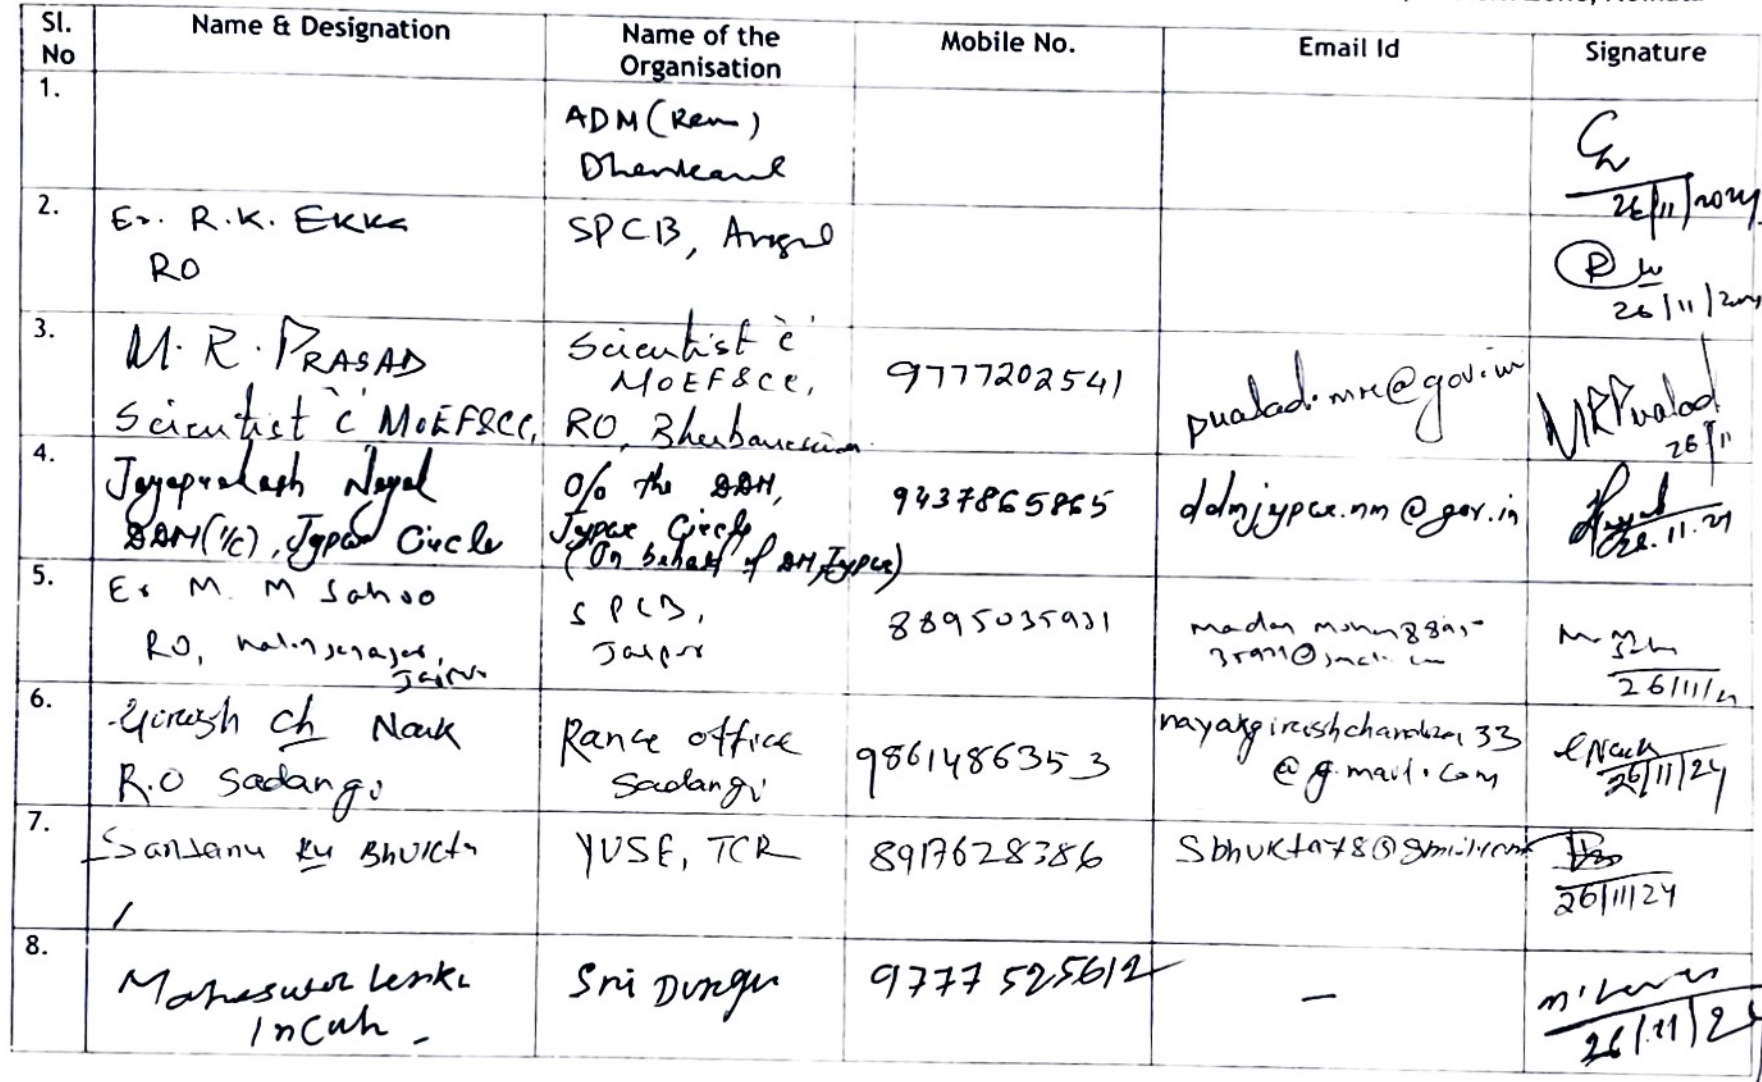 Zone, Kolkata
Sl. No
Name & Designation
Name of the Organisation
Mobile No.
Email Id
Signature
1.
ADM (Rev)
Dhenkanal
26/11/2024
2.
Er. R.K. Ekka
RO
SPCB, Angul
26/11/2024
3.
M. R. PRASAD
Scientist 'C' MoEF&CC,
Scientist 'C'
MoEF&CC,
RO, Bhubaneswar
9777202541
MRPrasad
26/11
4.
Jayaprakash Nayak
DDM(I/C), Jajpur Circle
O/o the DDM,
Jajpur Circle
(On behalf of DM, Jajpur)
9437865865
26.11.24
5.
Er M. M Sahoo
RO,
SPCB,
Jajpur
8895035931
26/11/24
6.
Girish Ch Naik
R.O Sadangi
Range office
Sadangi
9861486353
nayakgirishchandra33
@g.mail.com
26/11/24
7.
Santanu Ku Bhukta
YUSE, TCR
8917628386
26/11/24
8.
Maheswar Lenka
Sri Durga
9777525612
—
26/11/24